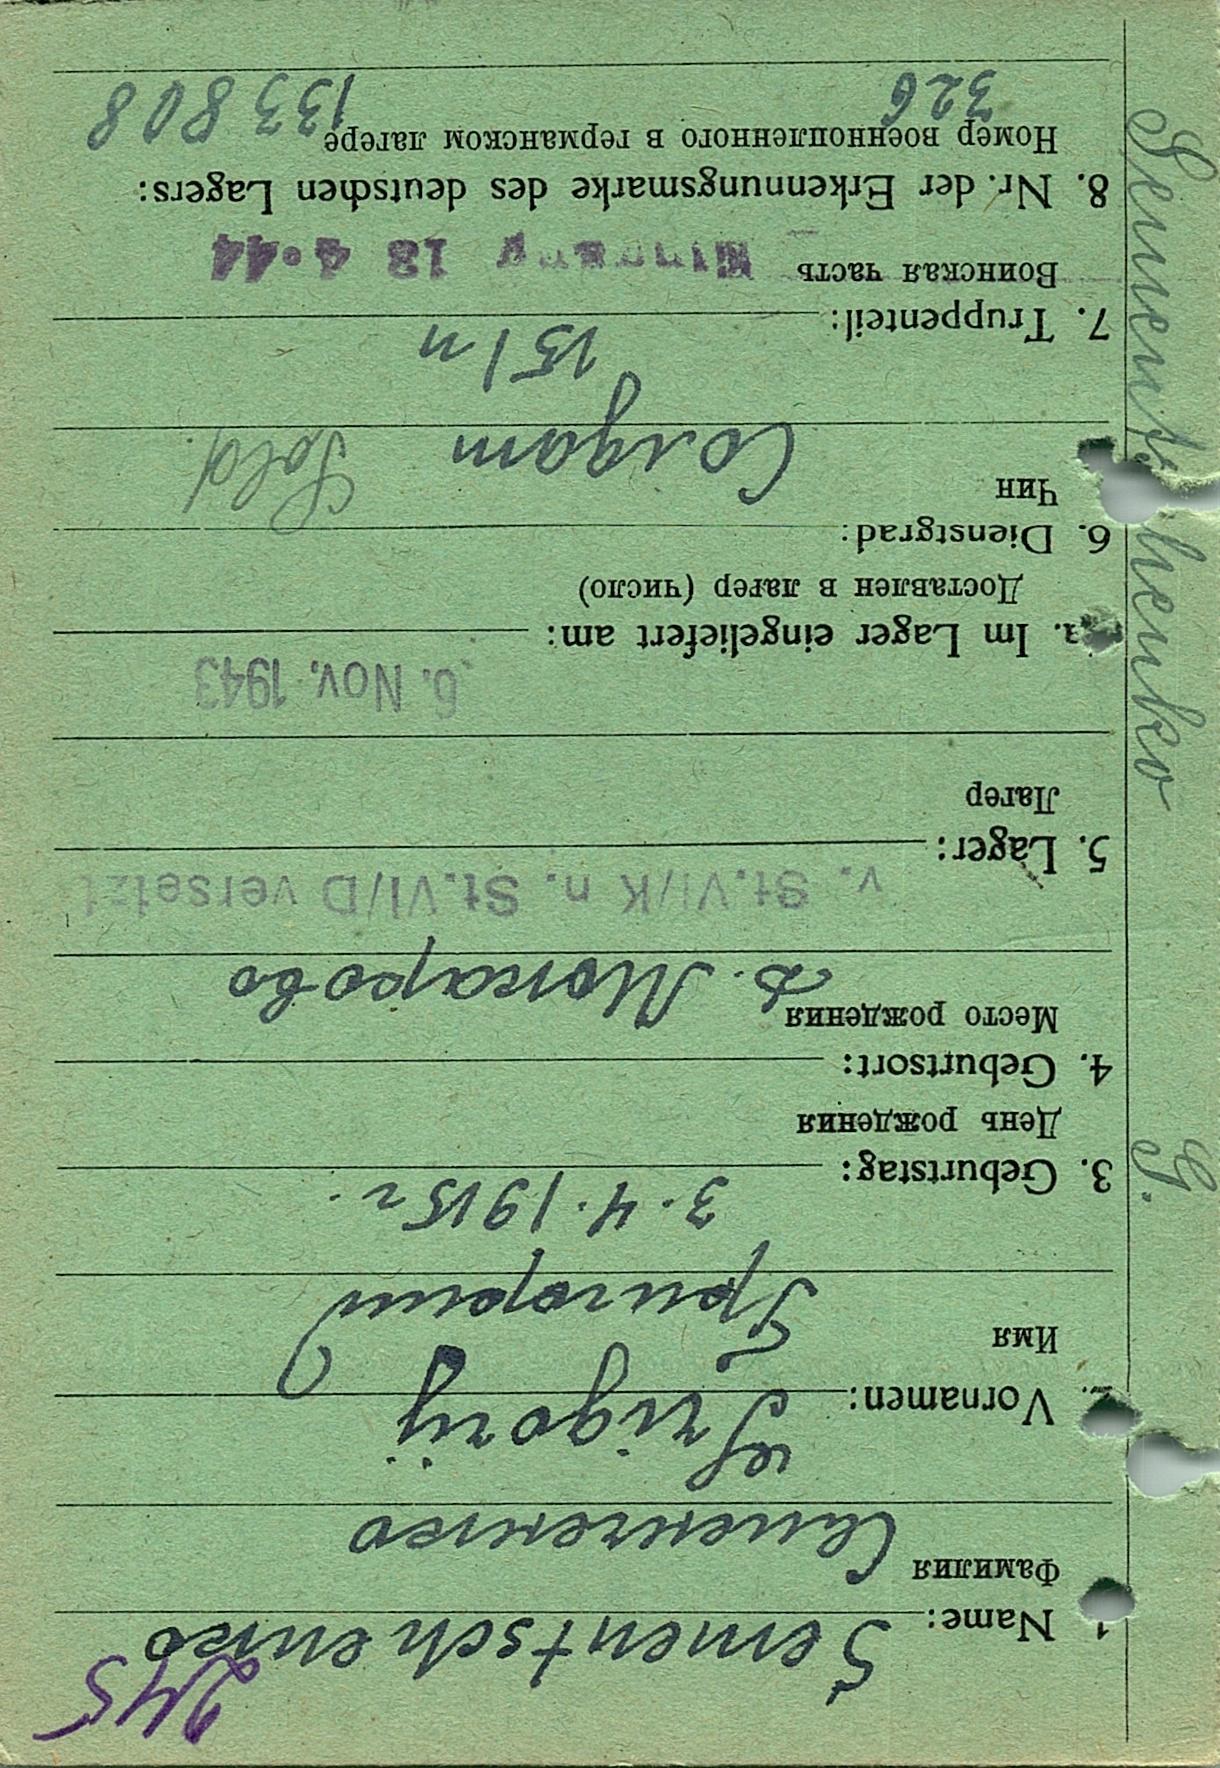 245
1. Name: Sementschenko
Фамилия Семенченко
2. Vornamen: Grigorij
Имя Григорий
3. Geburtstag: 3.4.1915 г.
День рождения
4. Geburtsort:
Место рождения д. Мокарово
v. St.VI/K n. St.VI/D versetzt
5. Lager:
Лагер
6. Nov. 1943
a. Im Lager eingeliefert am:
Доставлен в лагер (число)
6. Dienstgrad: Sold.
Чин Солдат
7. Truppenteil: 151 п
Воинская часть
13 4.44
8. Nr. der Erkennungsmarke des deutschen Lagers:
Номер военнопленного в германском лагере
326 133808
Sementschenko G.